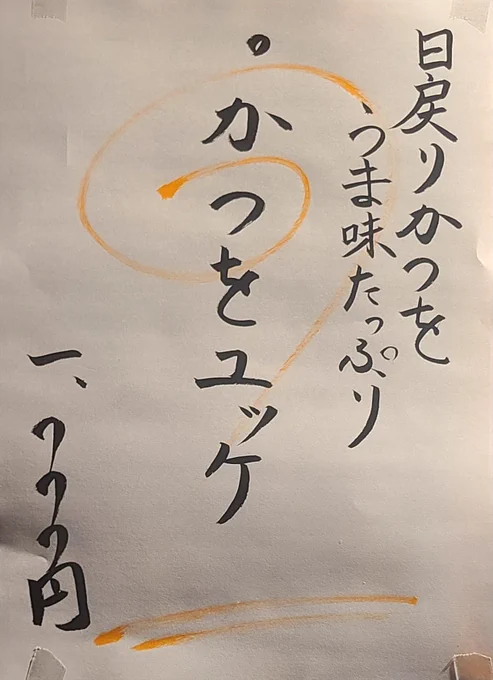 日戻りかつを
うま味たっぷり
。かつをユッケ
一、円